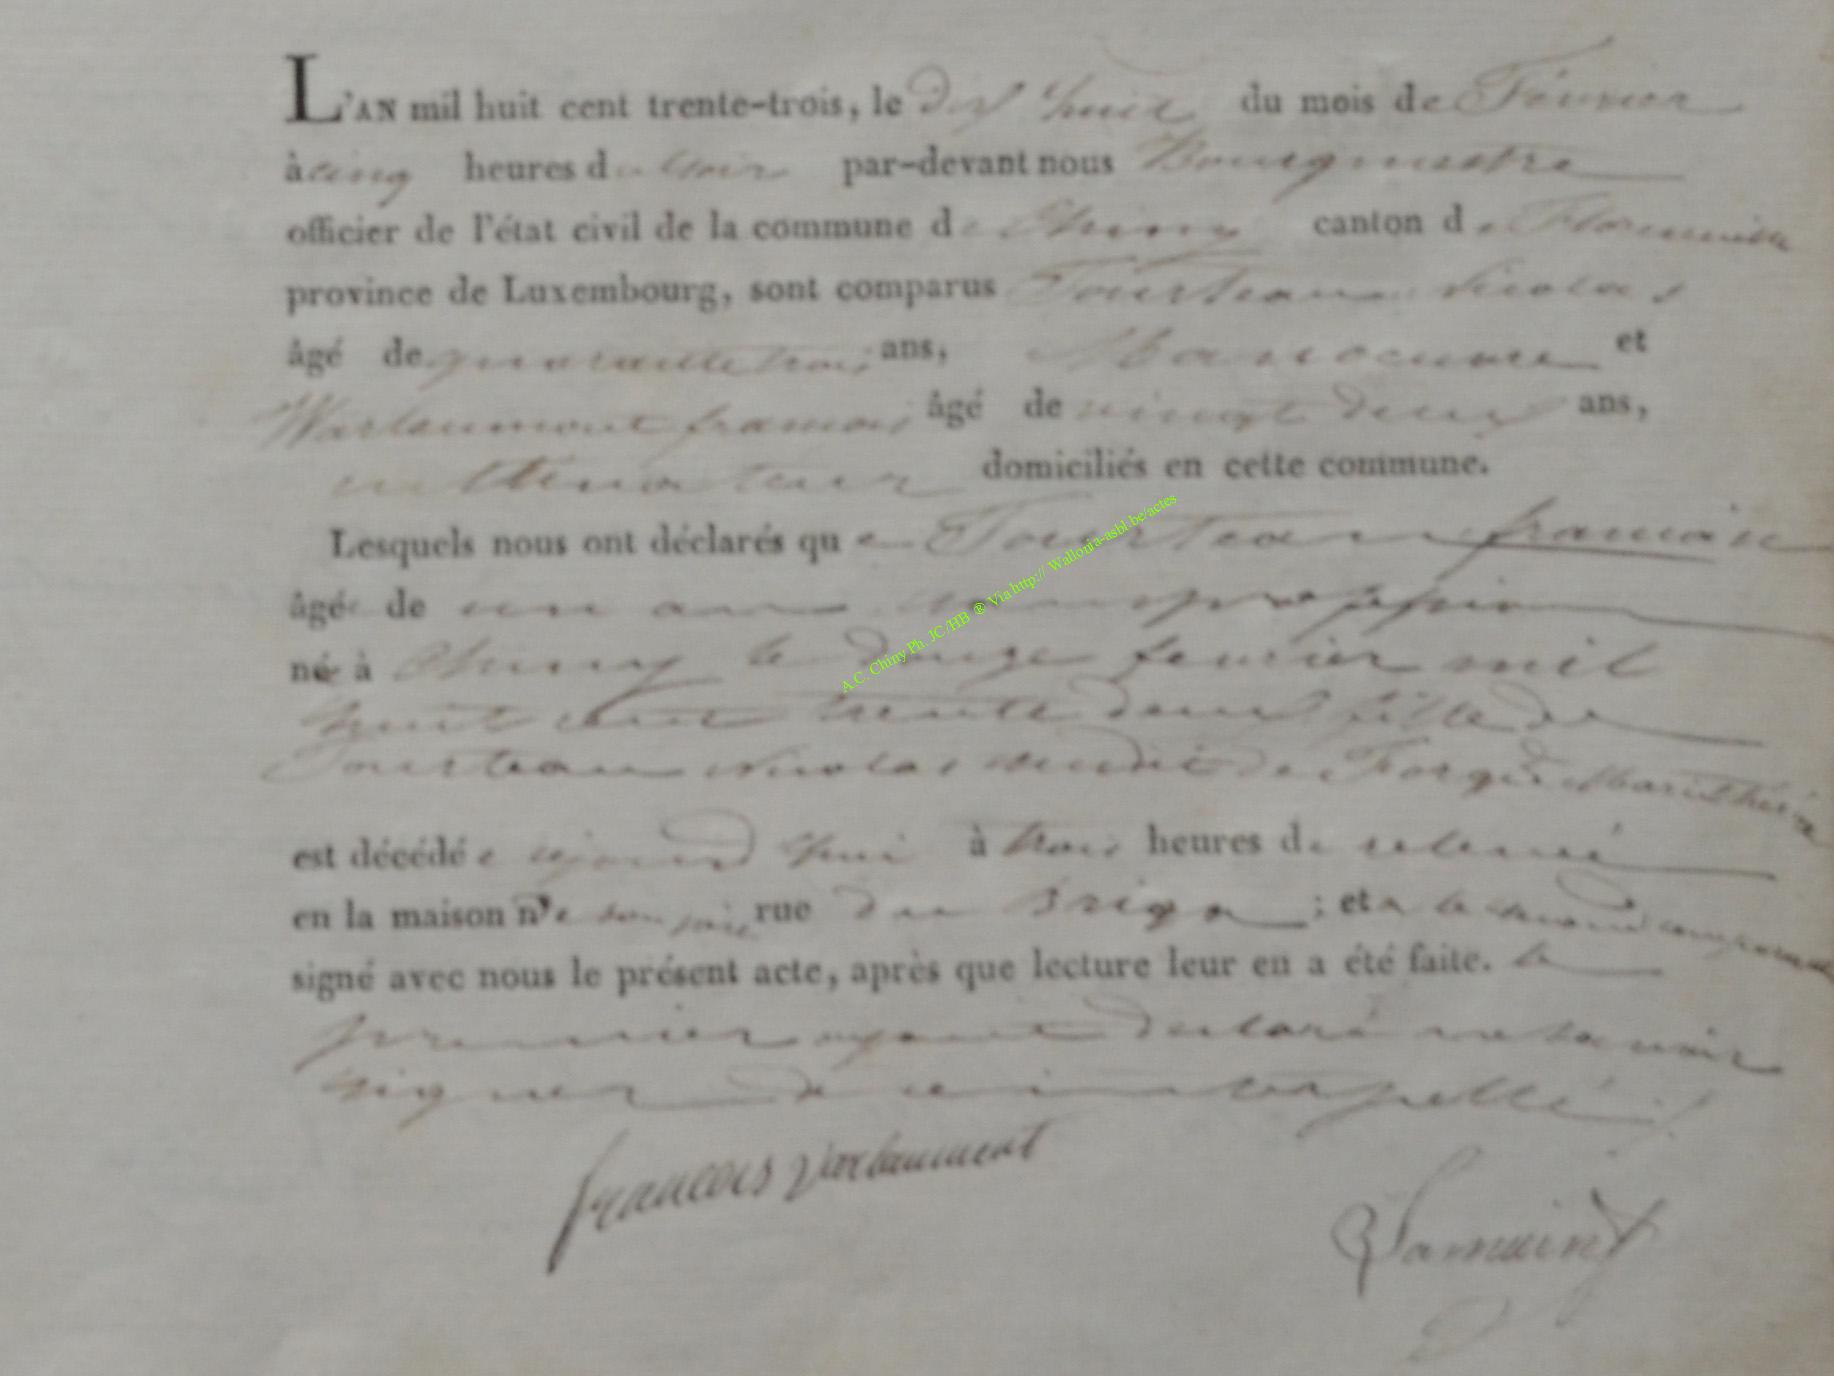 L'AN mil huit cent trente-trois, le dix huit du mois de Février
à cinq heures du soir par-devant nous Bourgmestre
officier de l'état civil de la commune de Chiny canton de Florenville
province de Luxembourg, sont comparus Tourteau Nicolas
âgé de quarante trois ans, Manoeuvre et
Warlaumont francois âgé de vingt deux ans,
domiciliés en cette commune.
Lesquels nous ont déclarés que Tourteau francoise
âgée de un an sans proffession
née à Chiny le douze fevrier mil
huit cent trente deux fille de
Tourteau Nicolas susdit de Marie Thérèse
est décédée ajourd'hui à trois heures de relevé
en la maison de son père rue du ; et a le second comparant
signé avec nous le présent acte, après que lecture leur en a été faite. le
premier ayant déclaré ne savoir
signer de ce interpellé
francois Varlaumont
A.C. Chiny Ph. JC/HB ® Via http:// Wallonia-asbl.be/actes